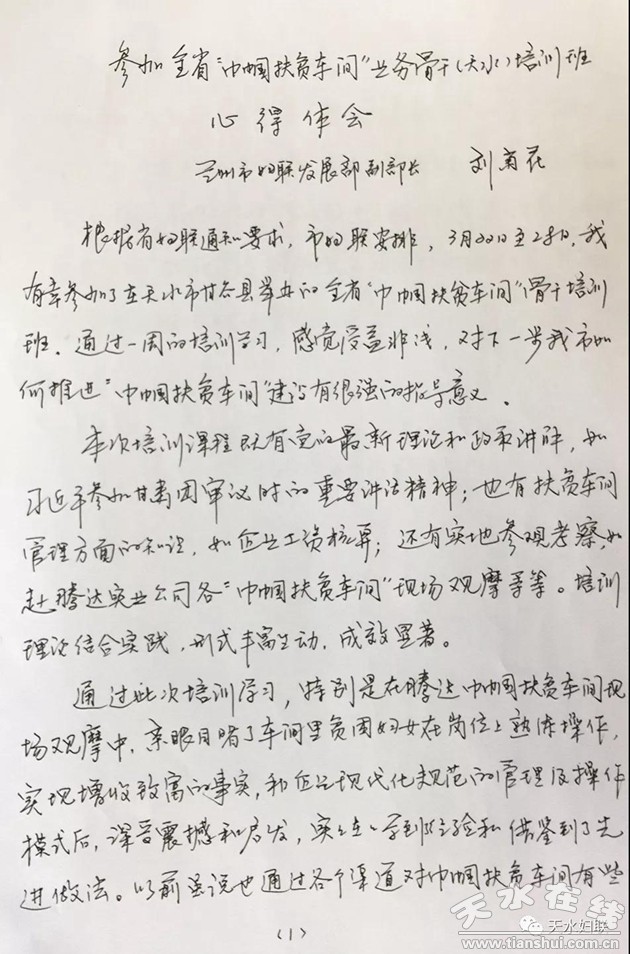 参加全省“巾帼扶贫车间”业务骨干(天水)培训班
心得体会
兰州市妇联发展部副部长 刘菊花
根据省妇联通知要求，市妇联安排，3月22日至28日，我
有幸参加了在天水市甘谷县举办的全省“巾帼扶贫车间”骨干培训
班。通过一周的培训学习，感觉受益非浅，对下一步我市如
何推进“巾帼扶贫车间”建设有很强的指导意义。
本次培训课程既有党的最新理论和政策讲解，如
习近平参加甘肃团审议时的重要讲话精神；也有扶贫车间
管理方面的知识，如企业工资核算；还有实地参观考察，如
赴腾达实业公司各“巾帼扶贫车间”现场观摩等等。培训
理论结合实践，形式丰富生动，成效显著。
通过此次培训学习，特别是在腾达巾帼扶贫车间现
场观摩中，亲眼目睹了车间里贫困妇女在岗位上熟练操作，
实现增收致富的事实，和企业现代化规范的管理及操作
模式后，深受震撼和启发，实实在在学到经验和借鉴到了先
进做法。以前虽说也通过各个渠道对巾帼扶贫车间有些
(1)
天水在线
天水妇联
www.tianshui.com.cn